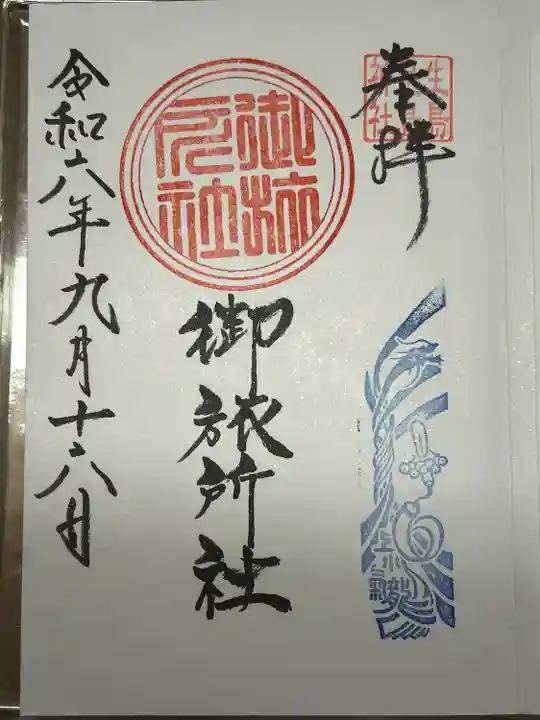 奉拝
生島足島神社
御旅所社
御旅所社
令和六年九月十六日